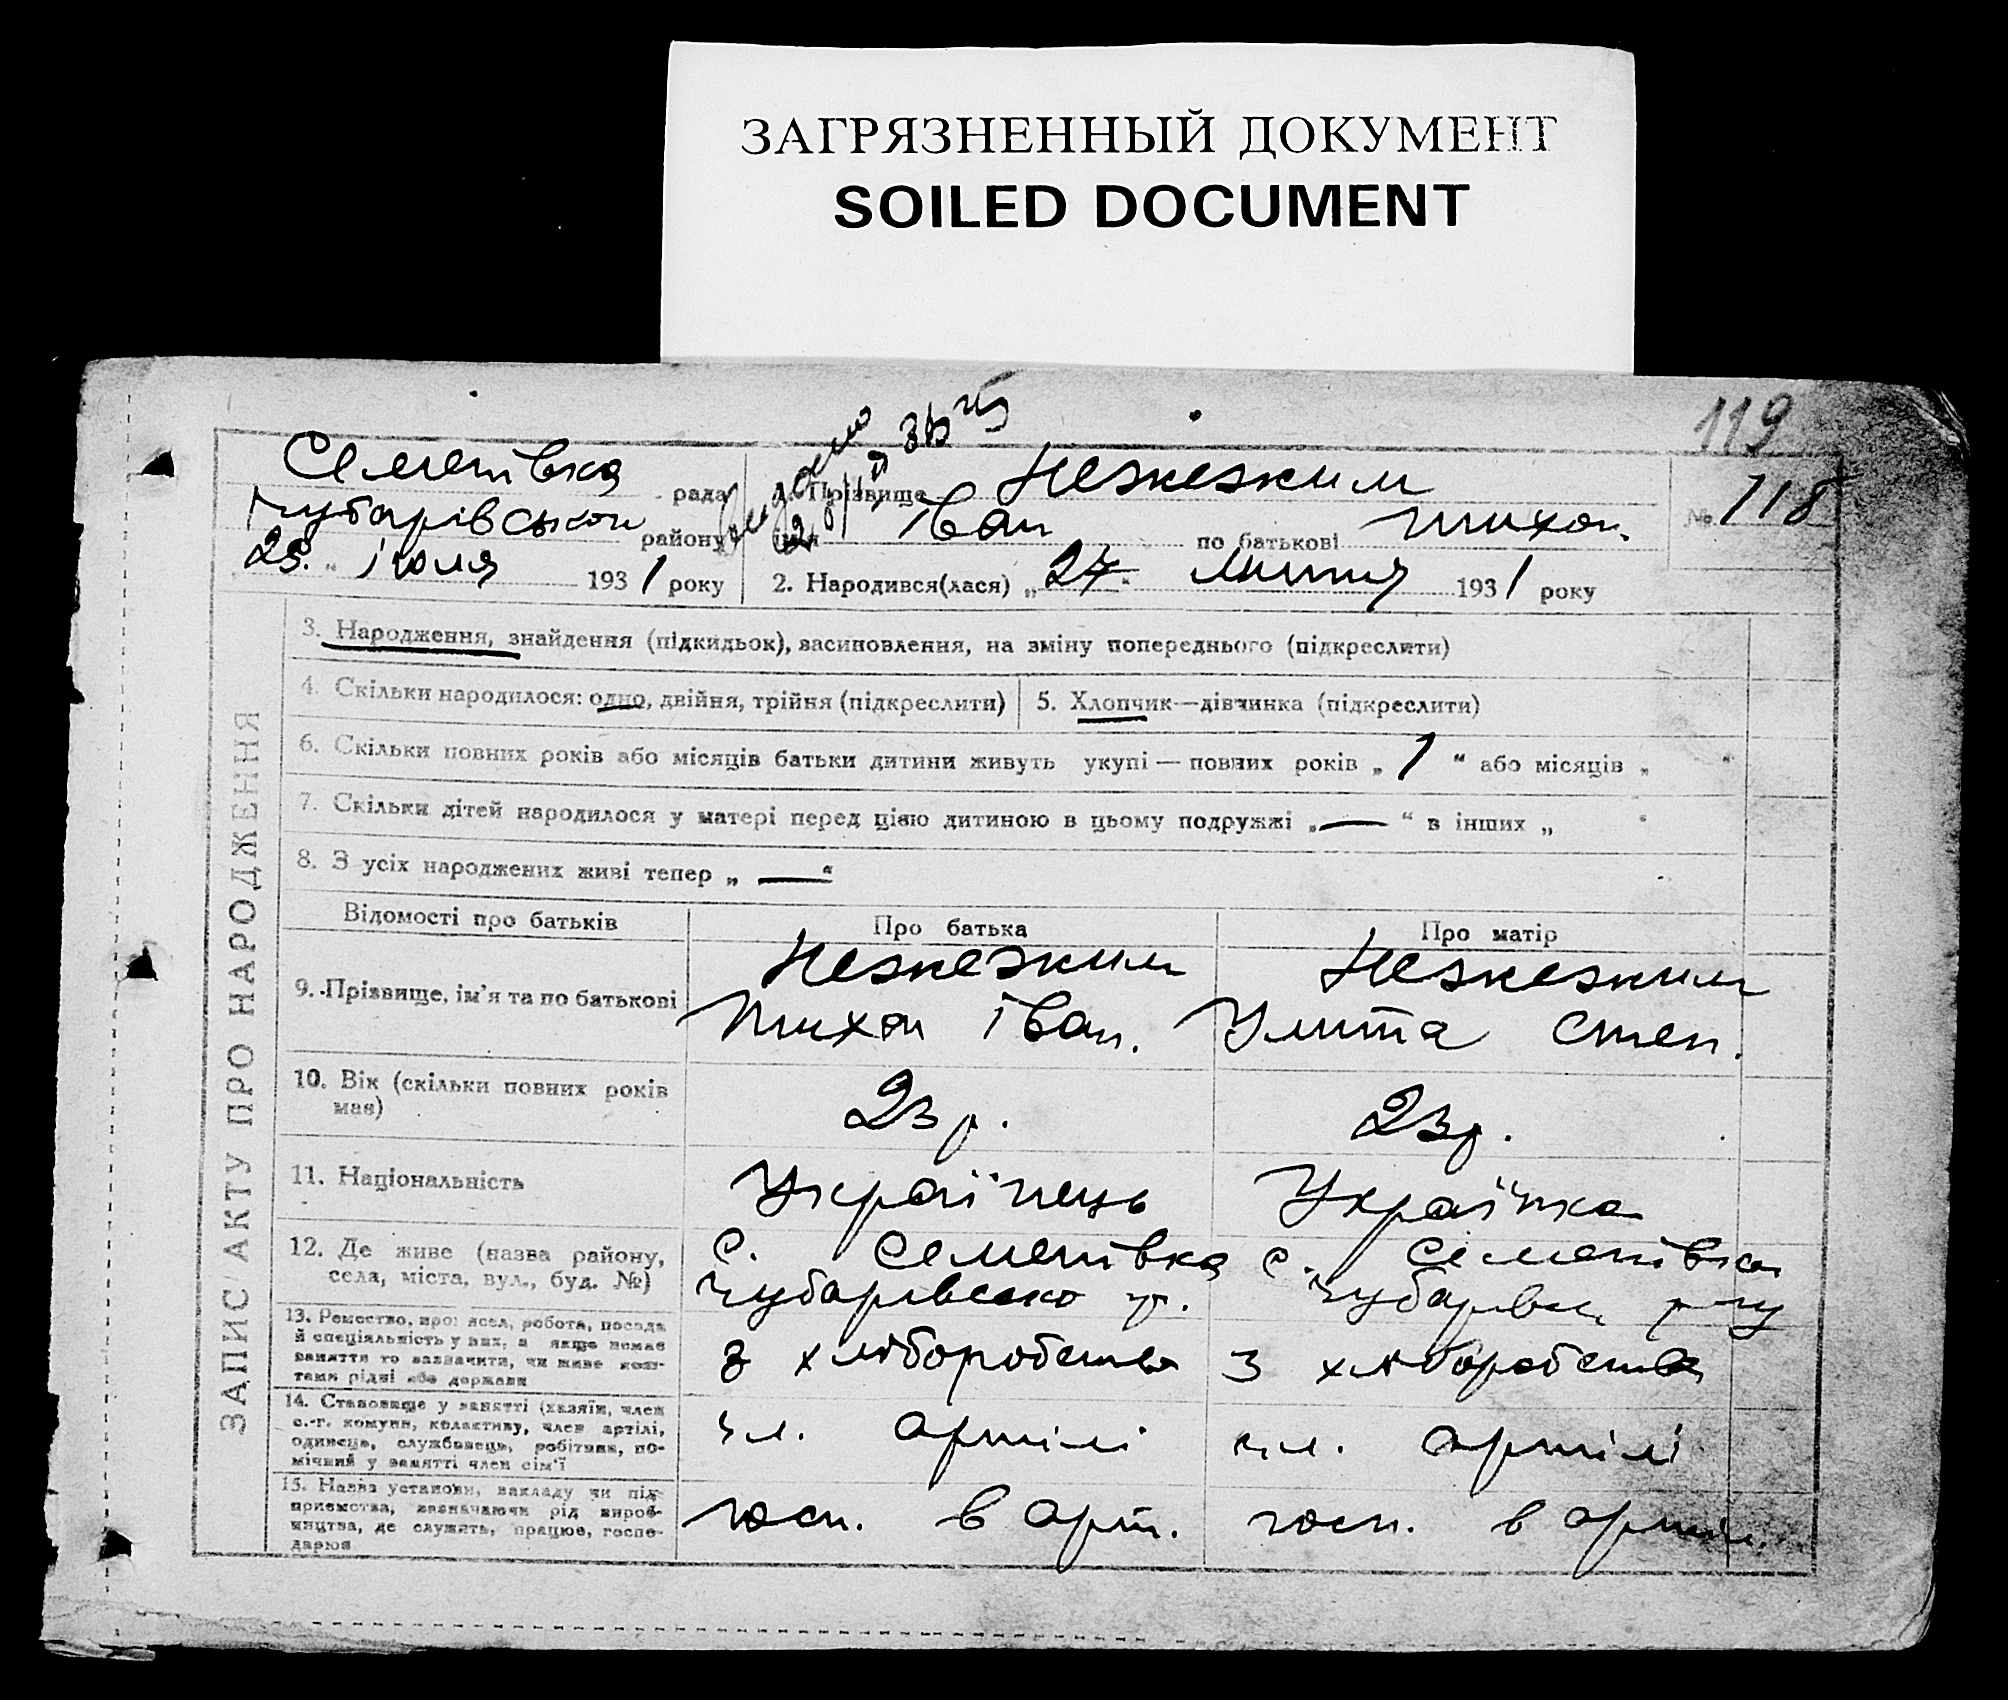 ЗАГРЯЗНЕННЫЙ ДОКУМЕНТ
SOILED DOCUMENT
119
Семенівка рада
Чубарівської району
25. „ іюля 1931 року
видано
1. Прізвище Нежежим
ім'я Іван по батькові Тихон.
2. Народився(лася) „24“ Липня 1931 року
№ 118
ЗАПИС АКТУ ПРО НАРОДЖЕННЯ
3. Народження, знайдення (підкидьок), васиновлення, на зміну попереднього (підкреслити)
4. Скільки народилося: одно, двійня, трійня (підкреслити)
5. Хлопчик—дівчинка (підкреслити)
6. Скільки повних років або місяців батьки дитини живуть укупі — повних років „ 1 “ або місяців „ “
7. Скільки дітей народилося у матері перед цією дитиною в цьому подружжі „—“ в інших „ “
8. З усіх народжених живі тепер „ — “
Відомості про батьків Про батька Про матір
9. Прізвище, ім'я та по батькові
Нежежим
Тихон Іван.
Нежежим
Улита Степ.
10. Вік (скільки повних років
має)
23 р.
23 р.
11. Національність
Українець
Українка
12. Де живе (назва району,
села, міста, вул., буд. №)
с. Семенівка
Чубарівсько р.
с. Семенівка
Чубарівськ р-ну
13. Ремество, про: ясел, робота, посада
й спеціяльність у них, а якщо немає
заняття то зазначити, чи живе кош-
тами рідні або держави
з хліборобства
з хліборобства
14. Становище у занятті (хазяїн, член
с.-г. комуни, колективу, член артілі,
одинець, службовець, робітник, по-
мічний у занятті член сім'ї
чл. артілі
чл. артілі
15. Назва установи, закладу чи під-
приємства, зазначаючи рід вироб-
ництва, де служить, працює, госпо-
дарює
госп. в арт.
госп. в артіл.